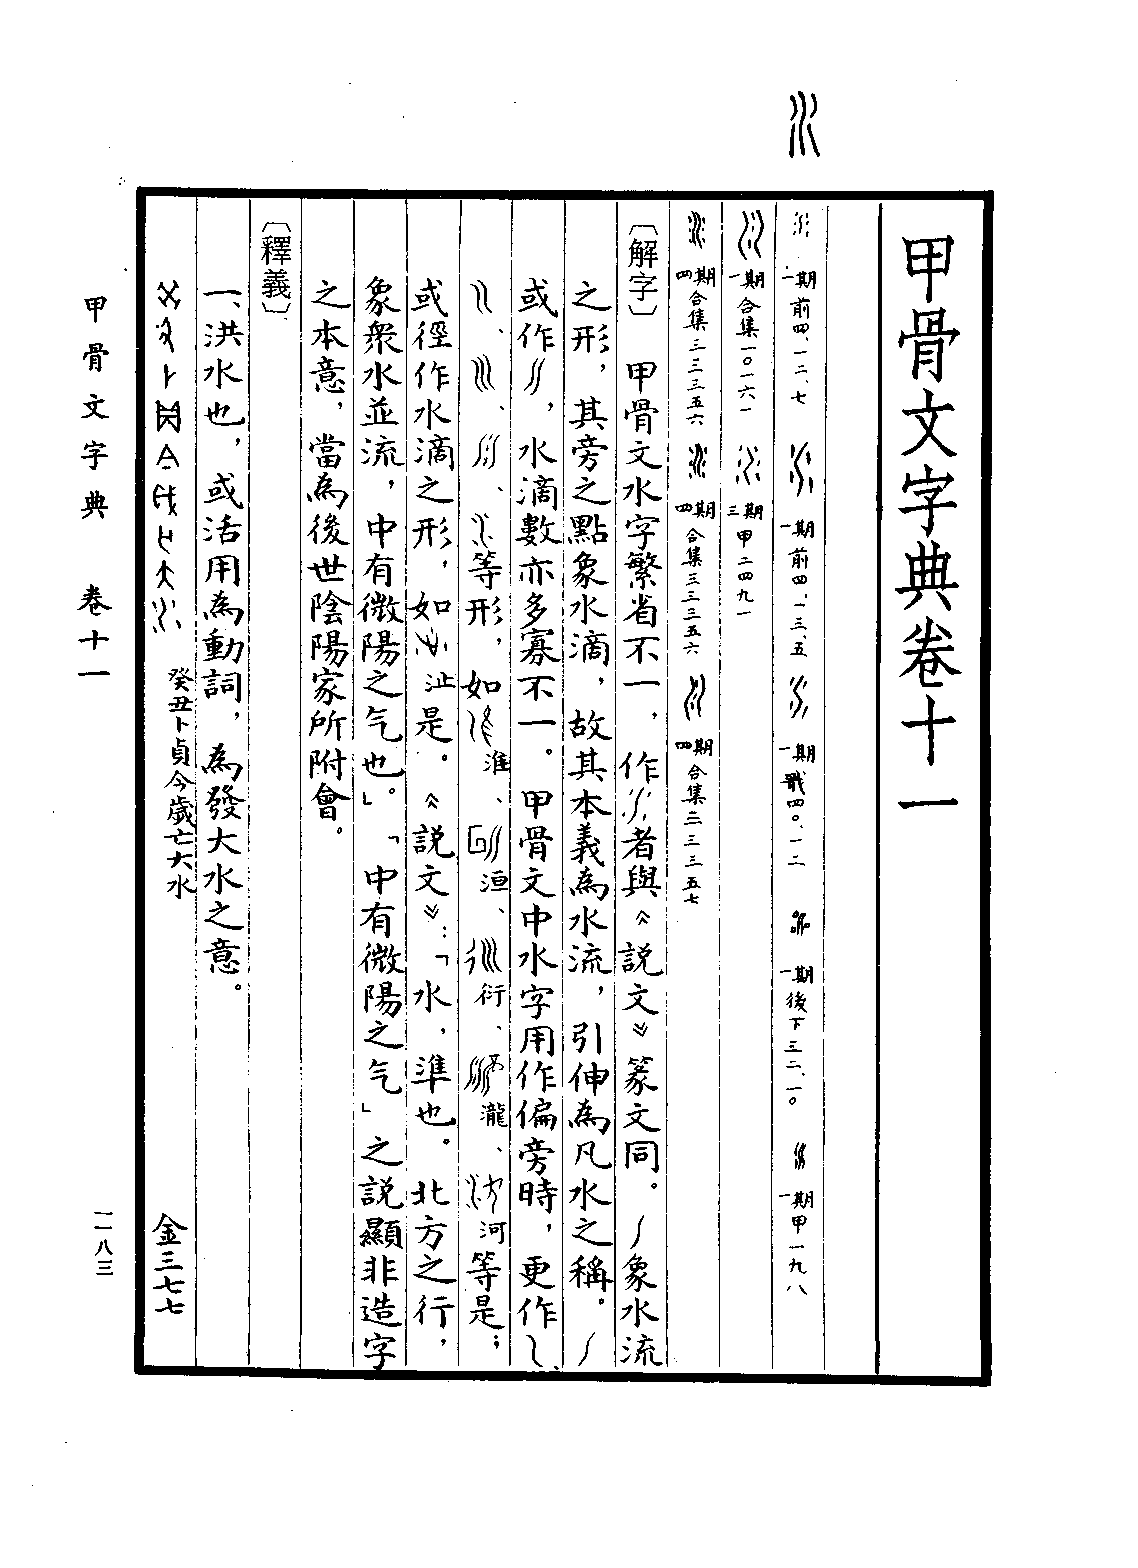 甲骨文字典卷十一
一期前四、一二、七　一期前四、一三、五　一期戩四〇、一二　一期後下三二、一〇　一期甲一九八
一期合集一〇一六一　三期甲二四九一
四期合集三三三五六　四期合集三三三五六　四期合集三三三五七
〔解字〕甲骨文水字繁省不一，作者與《說文》篆文同。象水流
之形，其旁之點象水滴，故其本義為水流，引伸為凡水之稱。
或作，水滴數亦多寡不一。甲骨文中水字用作偏旁時，更作、
、、、等形，如淮、洹、衍、瀧、河等是；
或徑作水滴之形，如沚是。《說文》：「水，準也。北方之行，
象眾水並流，中有微陽之气也。」「中有微陽之气」之說顯非造字
之本意，當為後世陰陽家所附會。
〔釋義〕
一、洪水也，或活用為動詞，為發大水之意。
癸丑卜貞今歲亡大水　金三七七
甲骨文字典　卷十一　一一八三